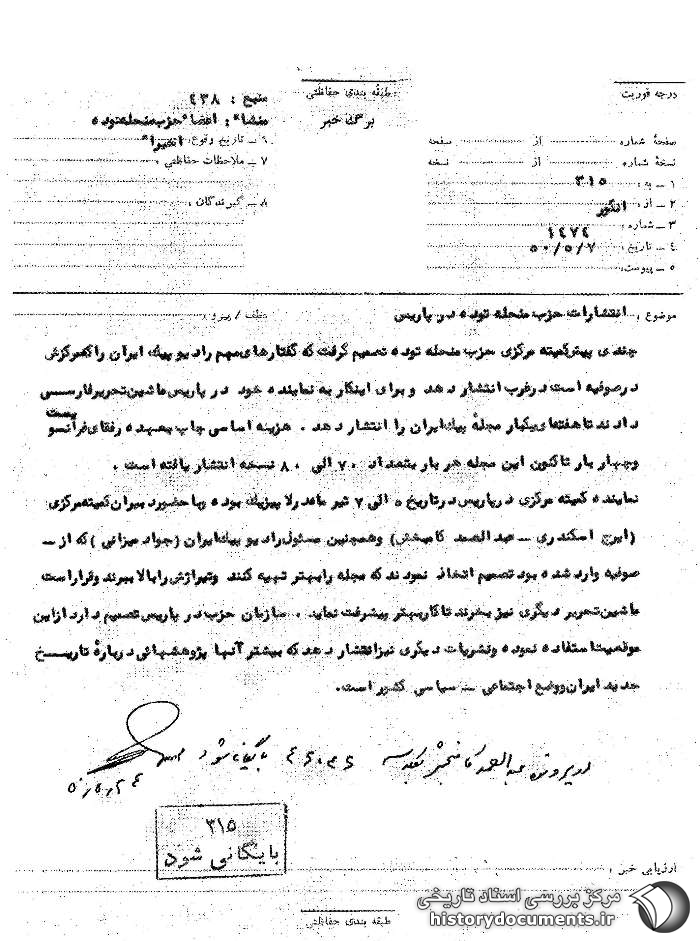 درجه فوریت
طبقه بندی حفاظتی
برگ خبر
منبع : ۴۳۸
منشاء : اعضاء حزب منحله توده
۶ ـ تاریخ وقوع : اخیرا"
۷ ـ ملاحظات حفاظتی :
۸ ـ گیرندگان :
صفحهٔ شماره از صفحه
نسخهٔ شماره از نسخه
۱ ـ به : ۳۱۵
۲ ـ از : انگور
۳ ـ شماره : ۱۴۷۴
۴ ـ تاریخ : ۵۰/۵/۷
۵ ـ پیوست :
موضوع : انتشارات حزب منحله توده در پاریس عطف / پیرو :
چندی پیش کمیته مرکزی حزب منحله توده تصمیم گرفت که گفتارهای مهم رادیو پیک ایران را که مرکزش
در صوفیه است در غرب انتشار دهد و برای اینکار به نماینده خود در پاریس ماشین تحریر فارسی
دادند تا هفته‌ای یکبار مجلهٔ پیک ایران را انتشار دهد . هزینه اساسی چاپ بعهده رفقای فرانسو بیست
و چهار بار تاکنون این مجله هر بار بتعداد ۷۰ الی ۸۰ نسخه انتشار یافته است .
نماینده کمیته مرکزی در پاریس در تاریخ ۵ الی ۷ تیر ماه در لایپزیک بوده و با حضور دبیران کمیته مرکزی
(ایرج اسکندری ـ عبدالصمد کامبخش) و همچنین مسئول رادیو پیک ایران (جواد میزانی) که از ـ
صوفیه وارد شده بود تصمیم اتخاذ نمودند که مجله را بهتر تهیه کنند و تیراژش را بالا ببرند و قرار است
ماشین تحریر دیگری نیز بخرند تا کار بهتر پیشرفت نماید . سازمان حزب در پاریس تصمیم دارد از این
موقعیت استفاده نموده و نشریات دیگری نیز انتشار دهد که بیشتر آنها پژوهشهائی دربارهٔ تاریخ
جدید ایران و وضع اجتماعی ـ سیاسی کشور است.
در پرونده عبدالصمد کامبخش بایگانی شود
۳۱۵
بایگانی شود
ارزیابی خبر :
طبقه بندی حفاظتی
مرکز بررسی اسناد تاریخی
historydocuments.ir